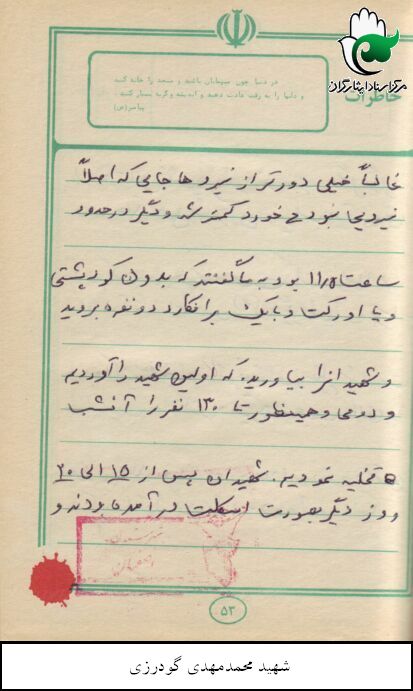 مرکز اسناد ایثارگران
خاطرات
در دنیا چون میهمانان باشید و مسجد را خانه کنید
و دلها را به رقت عادت دهید و اندیشه و گریه بسیار کنید.
پیامبر(ص)
غالباً خیلی دورتر از نیروها جایی که اصلاً
نیرویی نبود می خورد کمتر شد و دیگر در حدود
ساعت ۱۱/۵ بود به ما گفتند که بدون کوله پشتی
و با اورکت و با یک برانکارد دو نفره بروید
و شهید انرا بیاورید. که اولین شهید را آوردیم
و دومی و همینطور تا ۱۳۰ نفر را آنشب
تخلیه نمودیم. شهیدان پس از ۱۵ الی ۲۰
روز دیگر بصورت اسکلت در آمده بودند و
۵۳
شهید محمدمهدی گودرزی